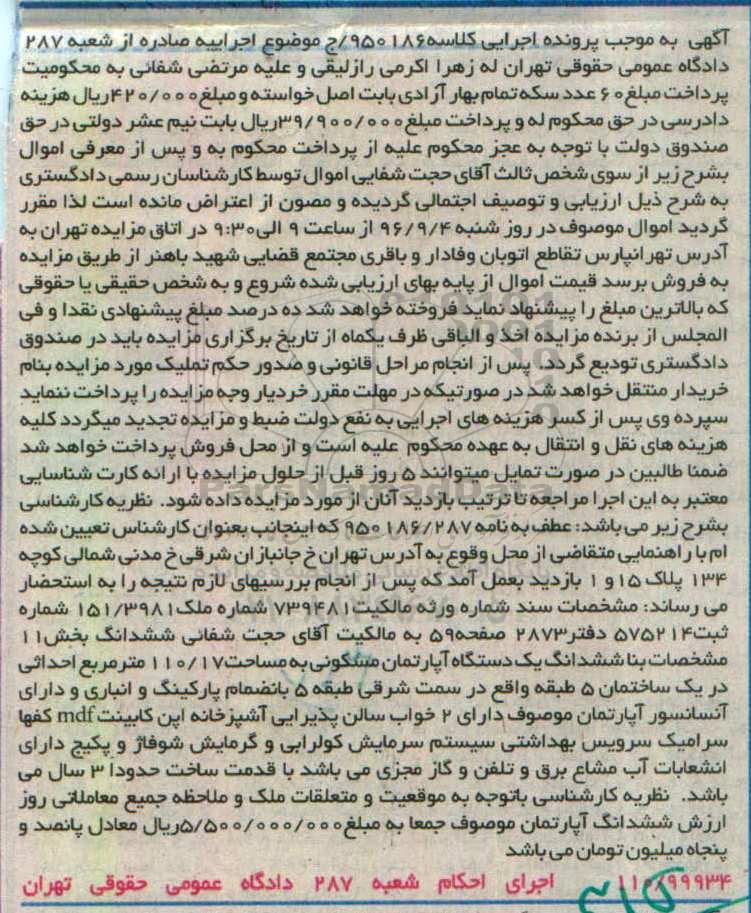 آگهی به موجب پرونده اجرایی کلاسه۹۵۰۱۸۶/ج موضوع اجراییه صادره از شعبه ۲۸۷
دادگاه عمومی حقوقی تهران له زهرا اکرمی رازلیقی و علیه مرتضی شفائی به محکومیت
پرداخت مبلغ۶۰ عدد سکه تمام بهار آزادی بابت اصل خواسته و مبلغ۴۲۰/۰۰۰ریال هزینه
دادرسی در حق محکوم له و پرداخت مبلغ۳۹/۹۰۰/۰۰۰ریال بابت نیم عشر دولتی در حق
صندوق دولت با توجه به عجز محکوم علیه از پرداخت محکوم به و پس از معرفی اموال
بشرح زیر از سوی شخص ثالث آقای حجت شفایی اموال توسط کارشناسان رسمی دادگستری
به شرح ذیل ارزیابی و توصیف اجتمالی گردیده و مصون از اعتراض مانده است لذا مقرر
گردید اموال موصوف در روز شنبه ۹۶/۹/۴ از ساعت ۹ الی۹:۳۰ در اتاق مزایده تهران به
آدرس تهرانپارس تقاطع اتوبان وفادار و باقری مجتمع قضایی شهید باهنر از طریق مزایده
به فروش برسد قیمت اموال از پایه بهای ارزیابی شده شروع و به شخص حقیقی یا حقوقی
که بالاترین مبلغ را پیشنهاد نماید فروخته خواهد شد ده درصد مبلغ پیشنهادی نقدا و فی
المجلس از برنده مزایده اخذ و الباقی ظرف یکماه از تاریخ برگزاری مزایده باید در صندوق
دادگستری تودیع گردد. پس از انجام مراحل قانونی و صدور حکم تملیک مورد مزایده بنام
خریدار منتقل خواهد شد در صورتیکه در مهلت مقرر خردیار وجه مزایده را پرداخت ننماید
سپرده وی پس از کسر هزینه های اجرایی به نفع دولت ضبط و مزایده تجدید میگردد کلیه
هزینه های نقل و انتقال به عهده محکوم علیه است و از محل فروش پرداخت خواهد شد
ضمنا طالبین در صورت تمایل میتوانند ۵ روز قبل از حلول مزایده با ارائه کارت شناسایی
معتبر به این اجرا مراجعه تا ترتیب بازدید آنان از مورد مزایده داده شود. نظریه کارشناسی
بشرح زیر می باشد: عطف به نامه ۹۵۰۱۸۶/۲۸۷ که اینجانب بعنوان کارشناس تعیین شده
ام با راهنمایی متقاضی از محل وقوع به آدرس تهران خ جانبازان شرقی خ مدنی شمالی کوچه
۱۳۴ پلاک ۱۵و ۱ بازدید بعمل آمد که پس از انجام بررسیهای لازم نتیجه را به استحضار
می رساند: مشخصات سند شماره ورثه مالکیت۷۳۹۴۸۱ شماره ملک۱۵۱/۳۹۸۱ شماره
ثبت۵۷۵۲۱۴ دفتر۲۸۷۳ صفحه۵۹ به مالکیت آقای حجت شفائی ششدانگ بخش۱۱
مشخصات بنا ششدانگ یک دستگاه آپارتمان مسکونی به مساحت۱۱۰/۱۷ مترمربع احداثی
در یک ساختمان ۵ طبقه واقع در سمت شرقی طبقه ۵ بانضمام پارکینگ و انباری و دارای
آنسانسور آپارتمان موصوف دارای ۲ خواب سالن پذیرایی آشپزخانه اپن کابینت mdf کفها
سرامیک سرویس بهداشتی سیستم سرمایش کولرابی و گرمایش شوفاژ و پکیج دارای
انشعابات آب مشاع برق و تلفن و گاز مجزی می باشد با قدمت ساخت حدودا ۳ سال می
باشد. نظریه کارشناسی باتوجه به موقعیت و متعلقات ملک و ملاحظه جمیع معاملاتی روز
ارزش ششدانگ آپارتمان موصوف جمعا به مبلغ۵/۵۰۰/۰۰۰/۰۰۰ریال معادل پانصد و
پنجاه میلیون تومان می باشد
۱۱۰/۹۹۹۳۴ اجرای احکام شعبه ۲۸۷ دادگاه عمومی حقوقی تهران